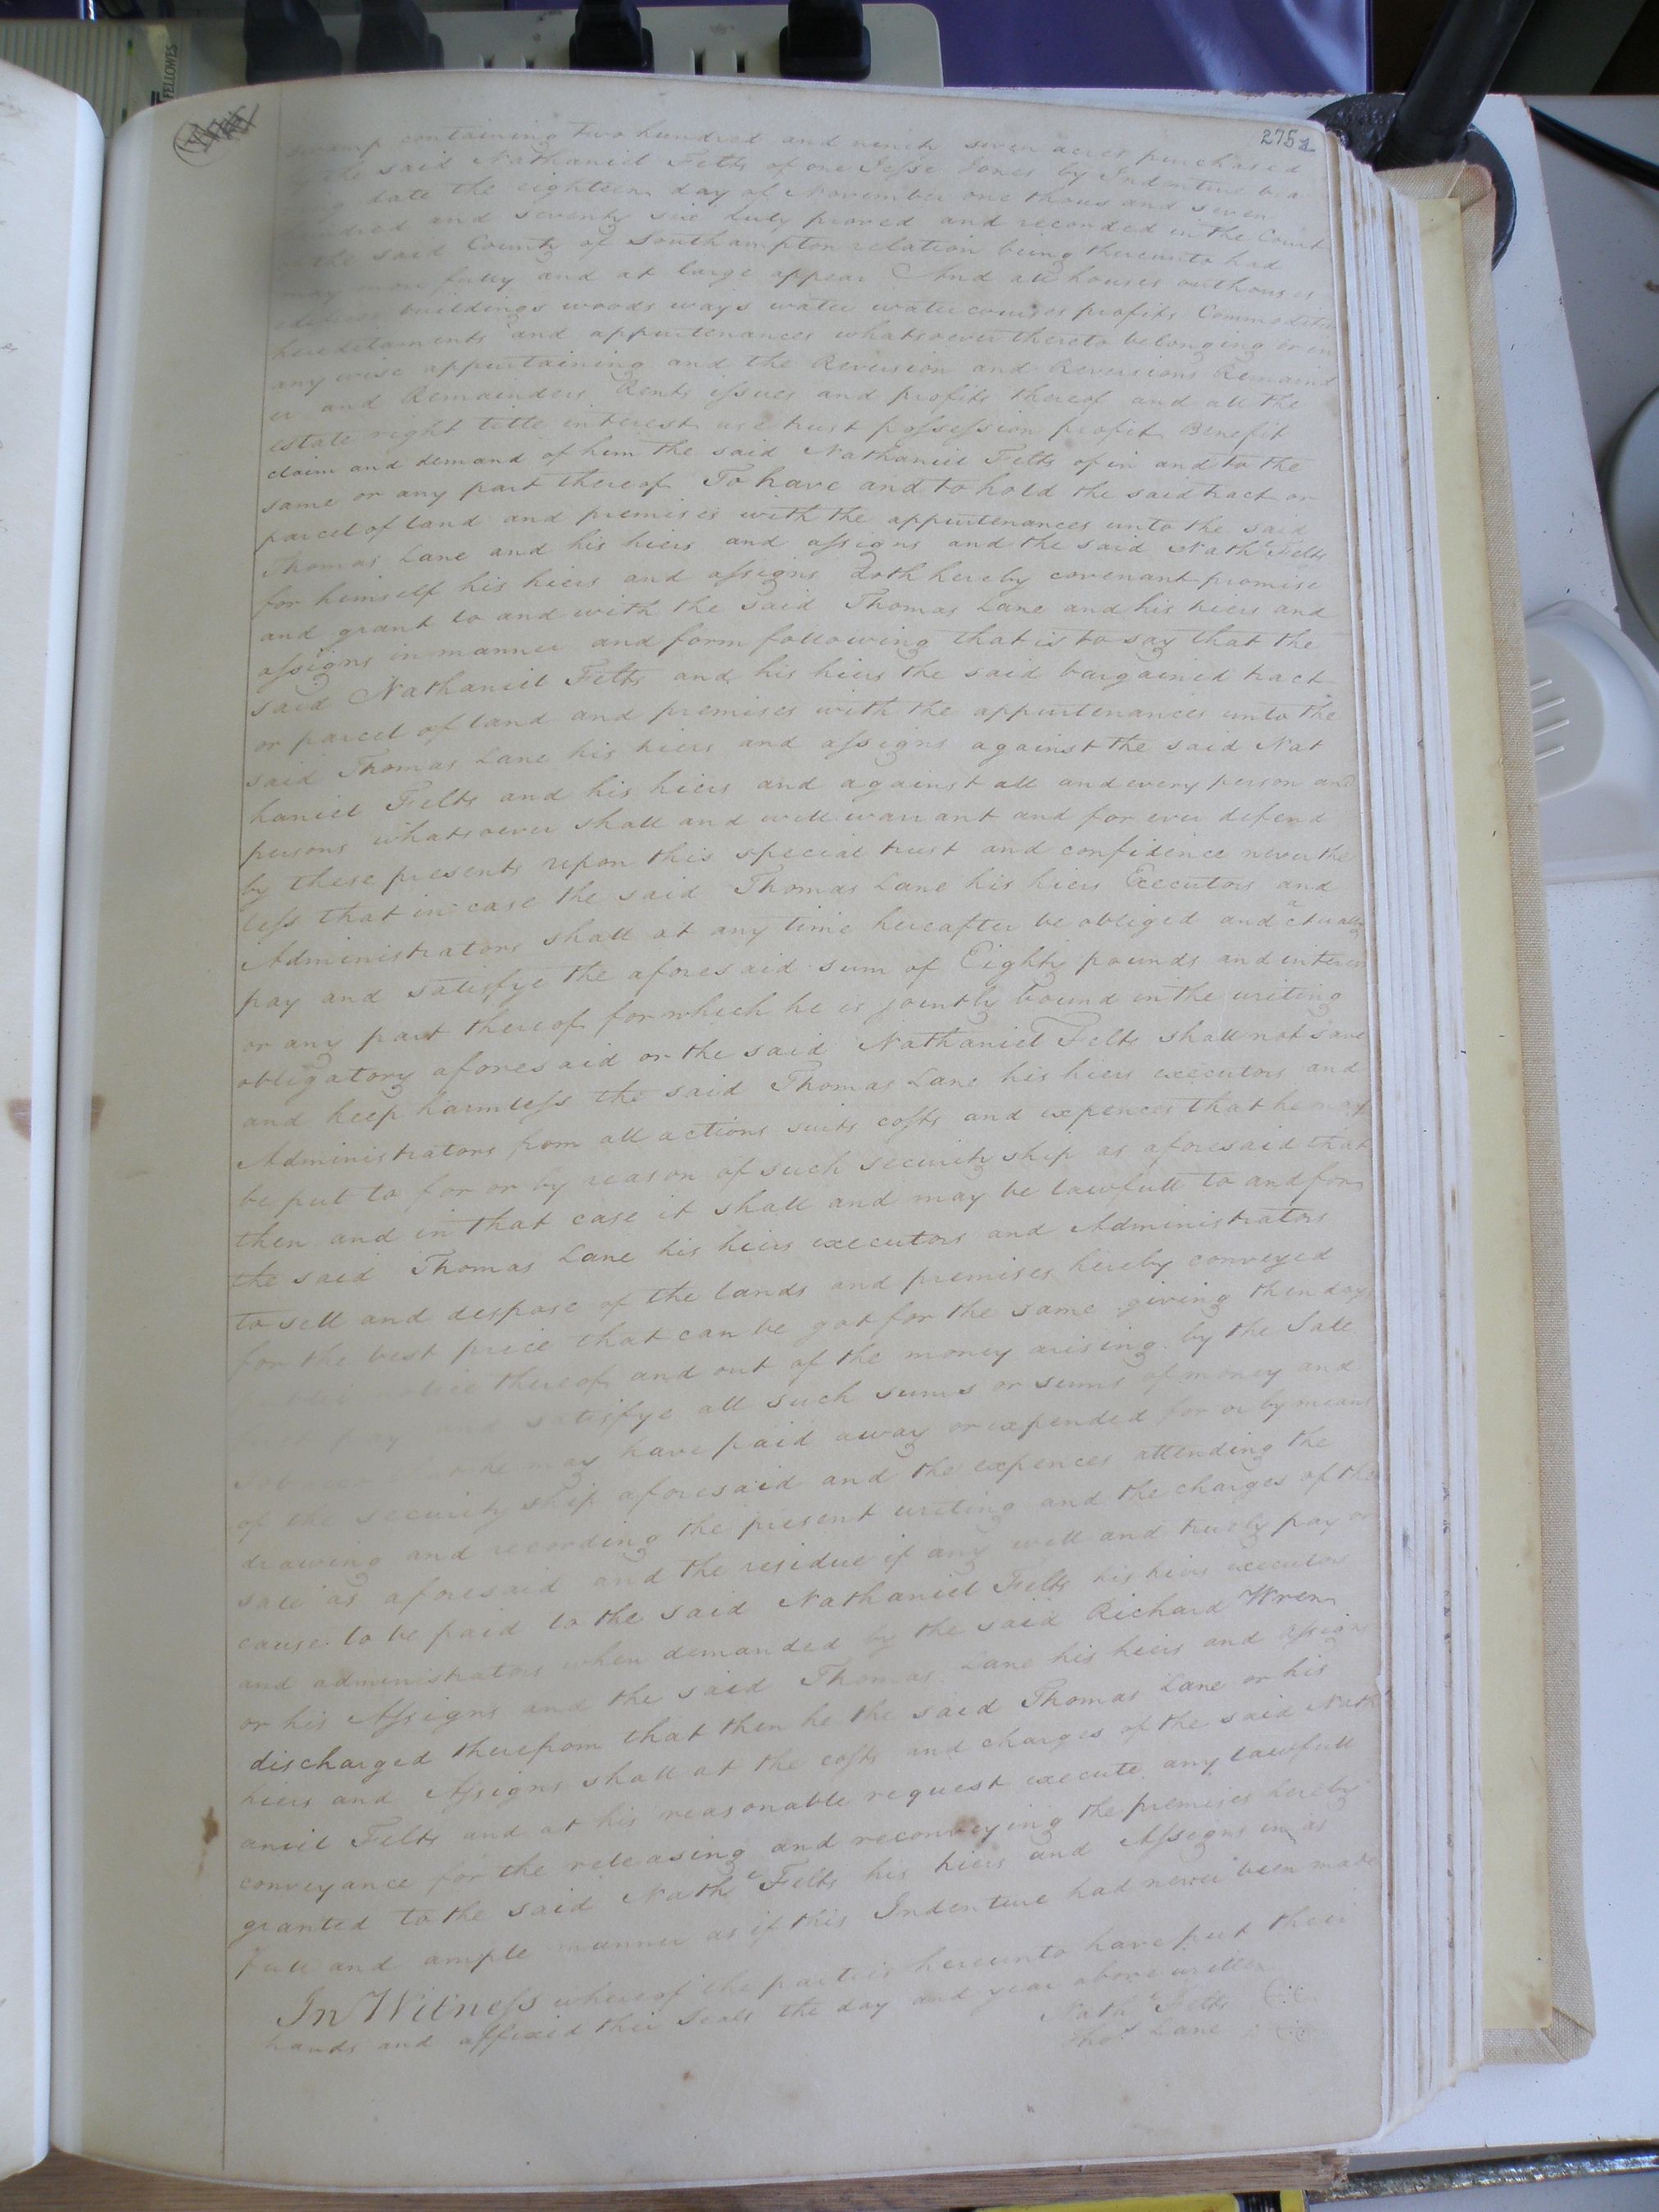 FELLOWES
275
swamp containing two hundred and ninety seven acres purchased
by the said Nathaniel Felts of one Jesse Jones by Indenture bea
ring date the eighteen day of November one thousand seven
hundred and seventy six duly proved and recorded in the Court
the said County of Southampton relation being thereunto had
may more fully and at large appear And all houses outhouses
edifices buildings woods ways water watercourses profits Commodities
hereditaments and appurtenances whatsoever thereto belonging or in
any wise appurtaining and the Reversion and Reversions Remaind
er and Remainders Rents issues and profits thereof and all the
estate right title interest use trust possession profit Benefit
claim and demand of him the said Nathaniel Felts of in and to the
same or any part thereof To have and to hold the said tract or
parcel of land and premises with the appurtenances unto the said
Thomas Lane and his heirs and assigns and the said Nathl Felts
for himself his heirs and assigns doth hereby covenant promise
and grant to and with the said Thomas Lane and his heirs and
assigns in manner and form following that is to say that the
said Nathaniel Felts and his heirs the said bargained tract
or parcel of land and premises with the appurtenances unto the
said Thomas Lane his heirs and assigns against the said Nat
haniel Felts and his heirs and against all and every person and
persons whatsoever shall and will warrant and for ever defend
by these presents upon this special trust and confidence never the
less that in case the said Thomas Lane his heirs Executors and
Administrators shall at any time hereafter be obliged and actually
pay and satisfye the aforesaid sum of Eighty pounds and interest
or any part thereof for which he is jointly bound in the writing
obligatory aforesaid or the said Nathaniel Felts shall not save
and keep harmless the said Thomas Lane his heirs executors and
Administrators from all actions suits costs and expences that he may
be put to for or by reason of such security ship as aforesaid that
then and in that case it shall and may be lawfull to and for
the said Thomas Lane his heirs executors and Administrators
to sell and dispose of the lands and premises hereby conveyed
for the best price that can be got for the same giving then days
notice thereof and out of the money arising by the Sale
first pay and satisfye all such sums or sums of money and
that he may have paid away or expended for or by means
of the security ship aforesaid and the expences attending the
drawing and recording the present writing and the charges of the
sale as aforesaid and the residue if any well and truly pay or
cause to be paid to the said Nathaniel Felts his heirs executors
and administrators when demanded by the said Richard Wren
or his Assigns and the said Thomas Lane his heirs and assigns
discharged therefrom that then he the said Thomas Lane or his
heirs and Assigns shall at the costs and charges of the said Nath
aniel Felts and at his reasonable request execute any lawfull
conveyance for the releasing and reconveying the premises hereby
granted to the said Nathl Felts his heirs and Assigns in as
full and ample manner as if this Indenture had never been made
In Witness whereof the parties hereunto have put their
hands and affixed their Seals the day and year above written
Nathl Felts
Thos Lane